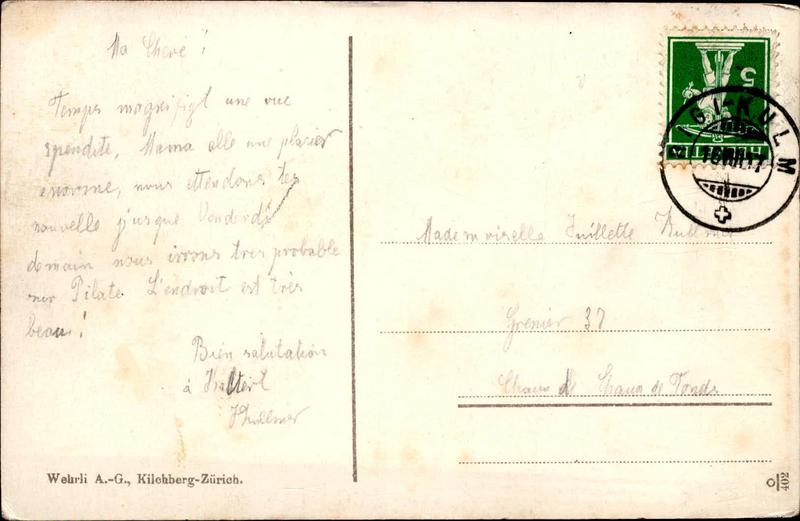 Ma Chere!
Temps magnifigt une vue
spendite, Mama elle une plasier
enorme, nous attendons tes
nouvelle j'usque Vendordi
demain nous irrons tres probable
sur Pilate. L'endroit est très
beau!
Bien salutation
à
HELVETIA
5
RIGI-KULM
16.VIII.17
Mademoiselle Juillette
Grenier 37
Chaux de Fonds
Wehrli A.-G., Kilchberg-Zürich.
402